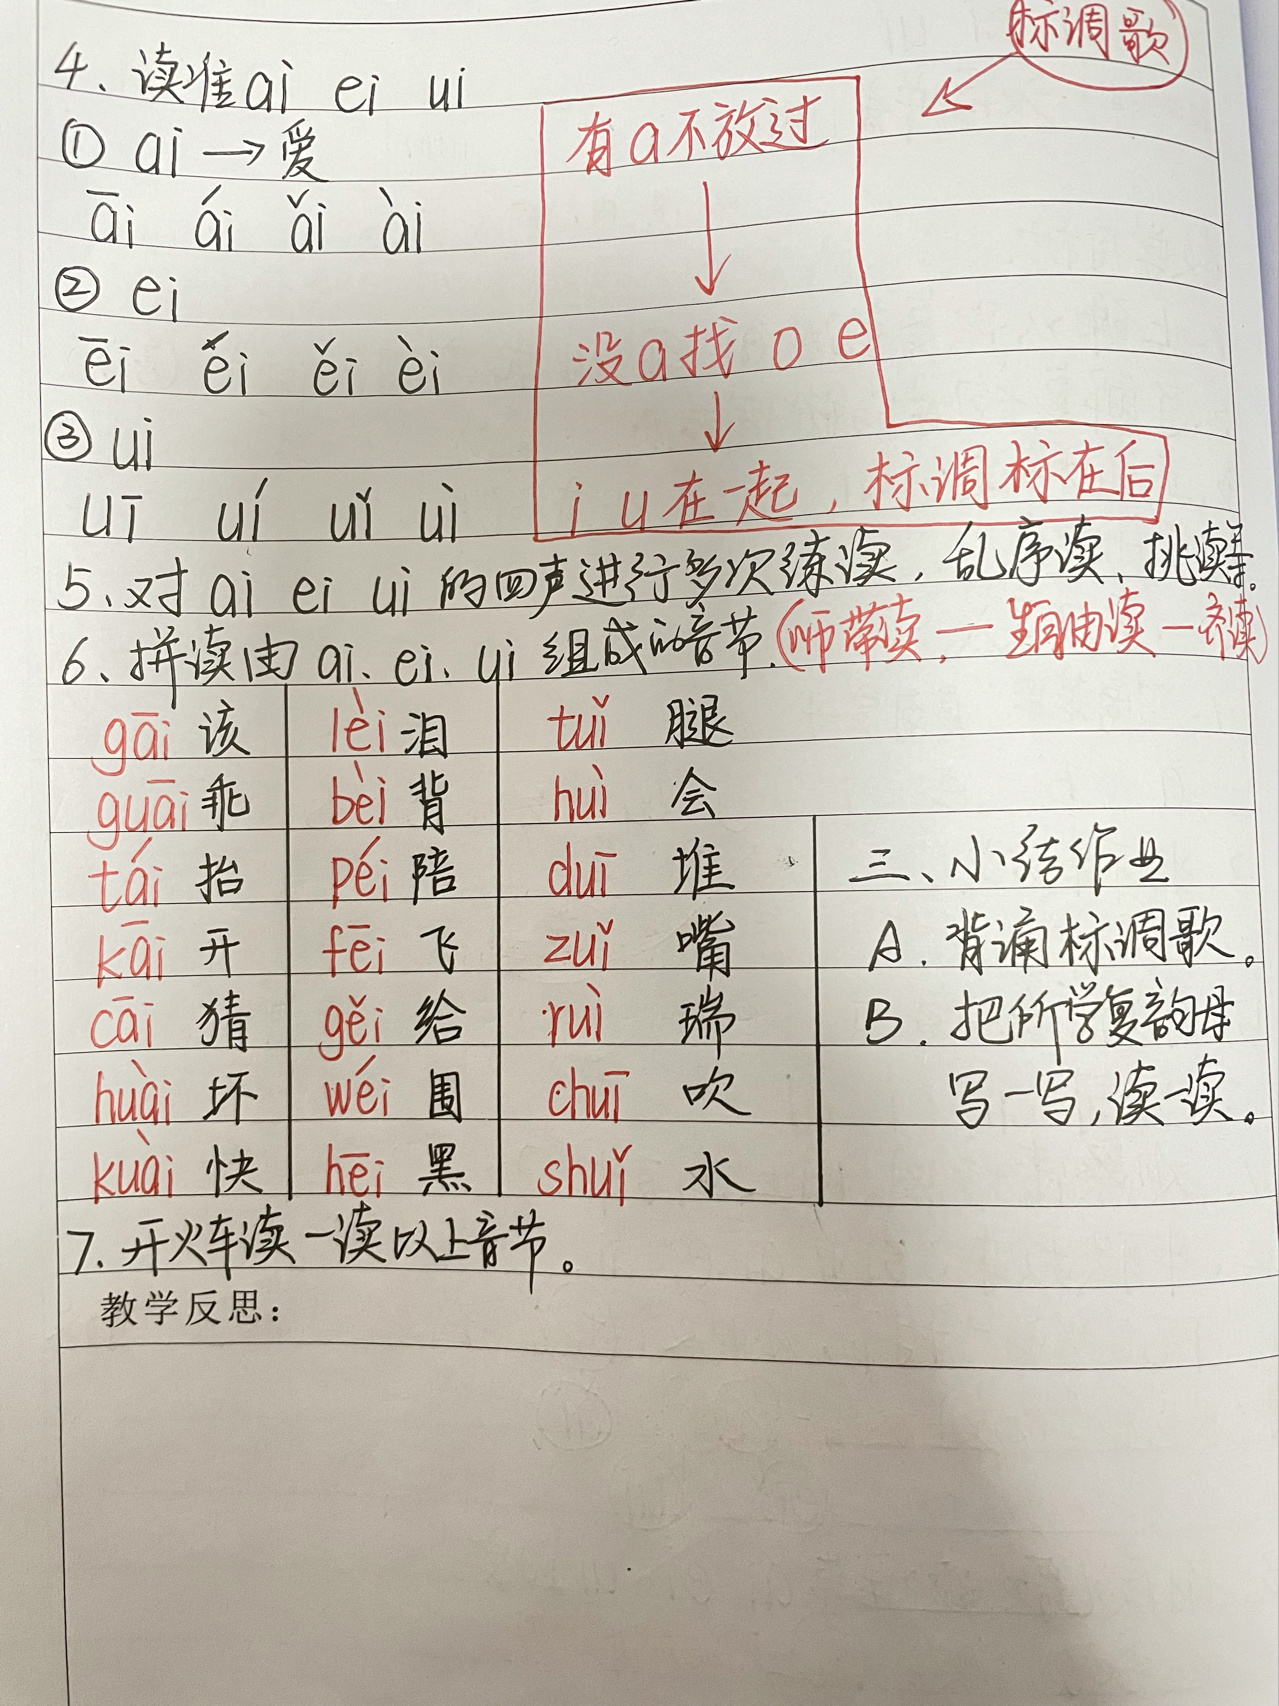 标调歌
4、读准ai ei ui
① ai→爱
āi ái ǎi ài
② ei
ēi éi ěi èi
③ ui
uī uí uǐ uì
有a不放过
↓
没a找 o e
↓
i u在一起，标调标在后
5、对 ai ei ui 的四声进行多次练读，乱序读、挑读等。
6、拼读由 ai、ei、ui 组成的音节.(师带读，—生自由读—齐读)
gāi 该 lèi 泪 tuǐ 腿
guāi 乖 bèi 背 huì 会
tái 抬 péi 陪 duī 堆
kāi 开 fēi 飞 zuǐ 嘴
cāi 猜 gěi 给 ruì 瑞
huài 坏 wéi 围 chuī 吹
kuài 快 hēi 黑 shuǐ 水
三、小结作业
A. 背诵标调歌。
B. 把所学复韵母
写一写，读一读。
7、开火车读一读以上音节。
教学反思：